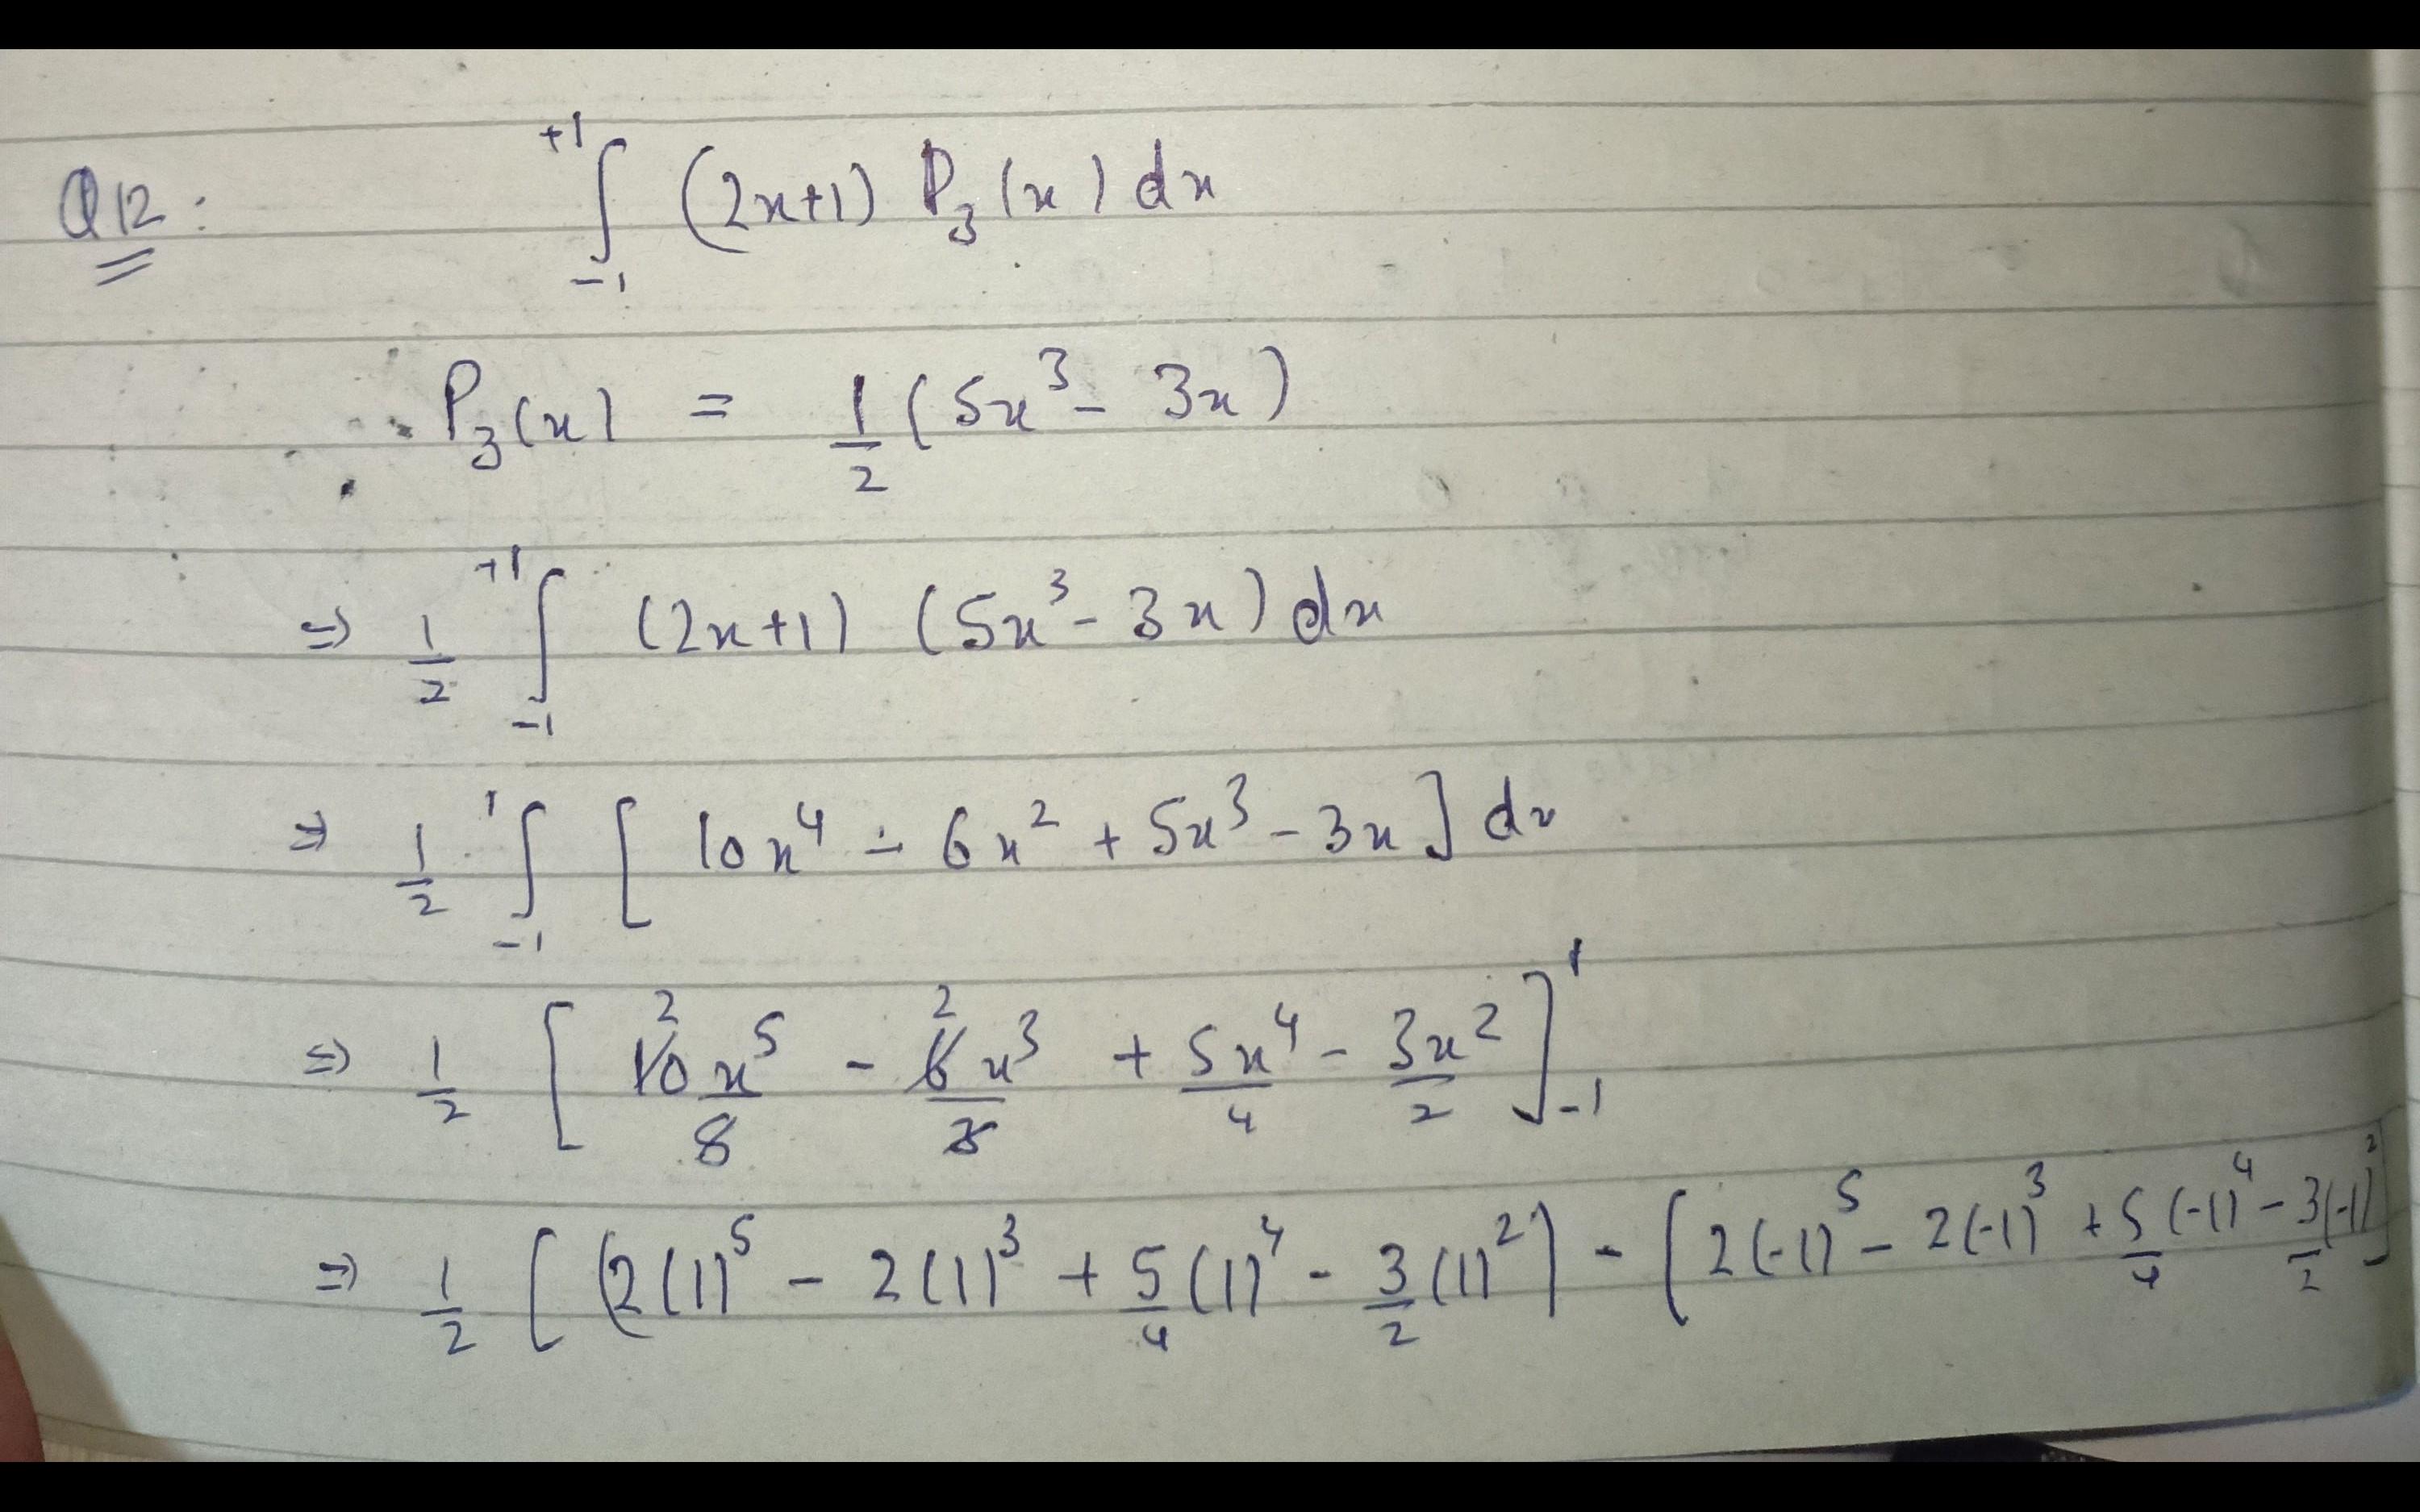 Q12: +1∫-1 (2x+1) P₃(x) dx
P₃(x) = 1/2 (5x³ - 3x)
⇒ 1/2 +1∫-1 (2x+1) (5x³ - 3x) dx
⇒ 1/2 1∫-1 [10x⁴ - 6x² + 5x³ - 3x] dx
⇒ 1/2 [ 2 10x⁵/5 - 2 6x³/3 + 5x⁴/4 - 3x²/2 ]1-1
⇒ 1/2 [ (2(1)⁵ - 2(1)³ + 5/4 (1)⁴ - 3/2 (1)²) - [2(-1)⁵ - 2(-1)³ + 5/4 (-1)⁴ - 3/2 (-1)²]